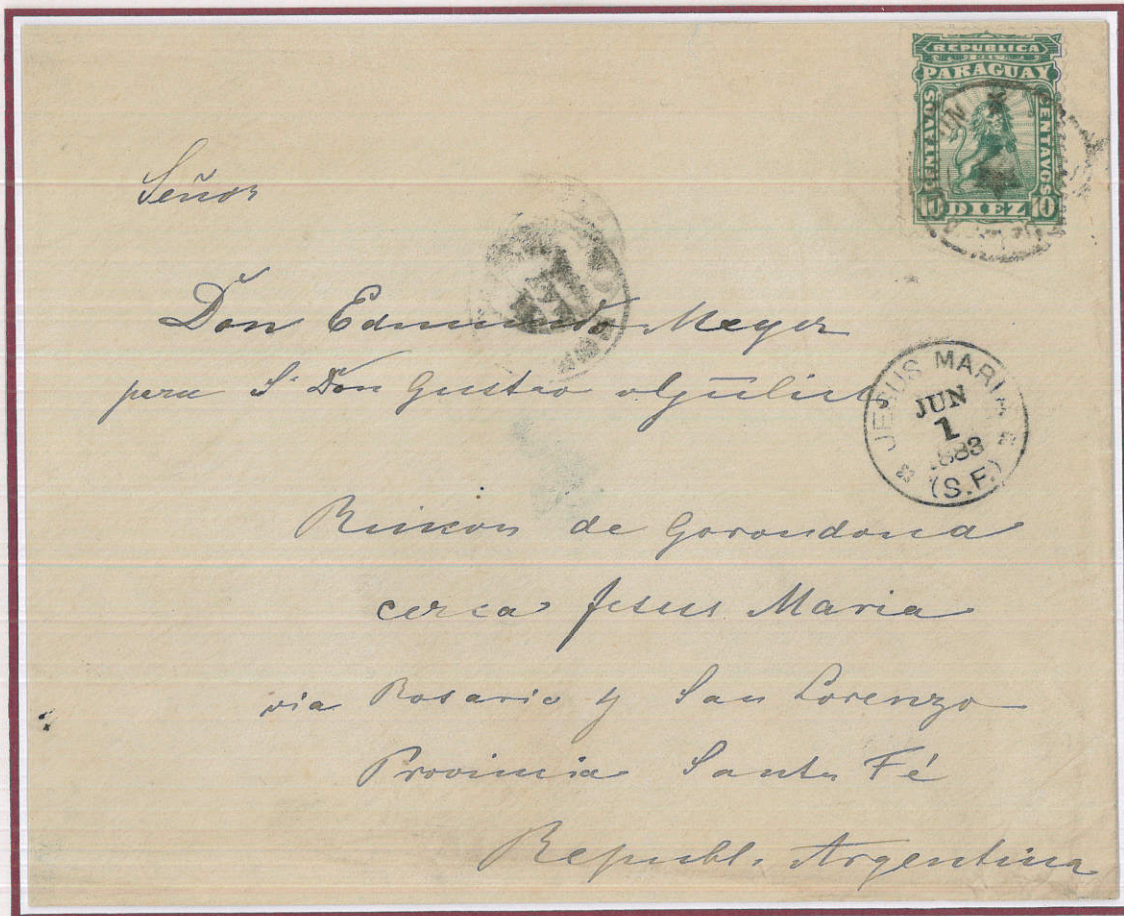 REPUBLICA
PARAGUAY
CENTAVOS CENTAVOS
10 DIEZ 10
Señor
Don Edmundo Meyer
para Sr Don Gustavo
JESUS MARIA
JUN
1
1883
(S.F.)
Rincon de Gorondona
cerca Jesus Maria
via Rosario y San Lorenzo
Provincia Santa Fé
Republ. Argentina